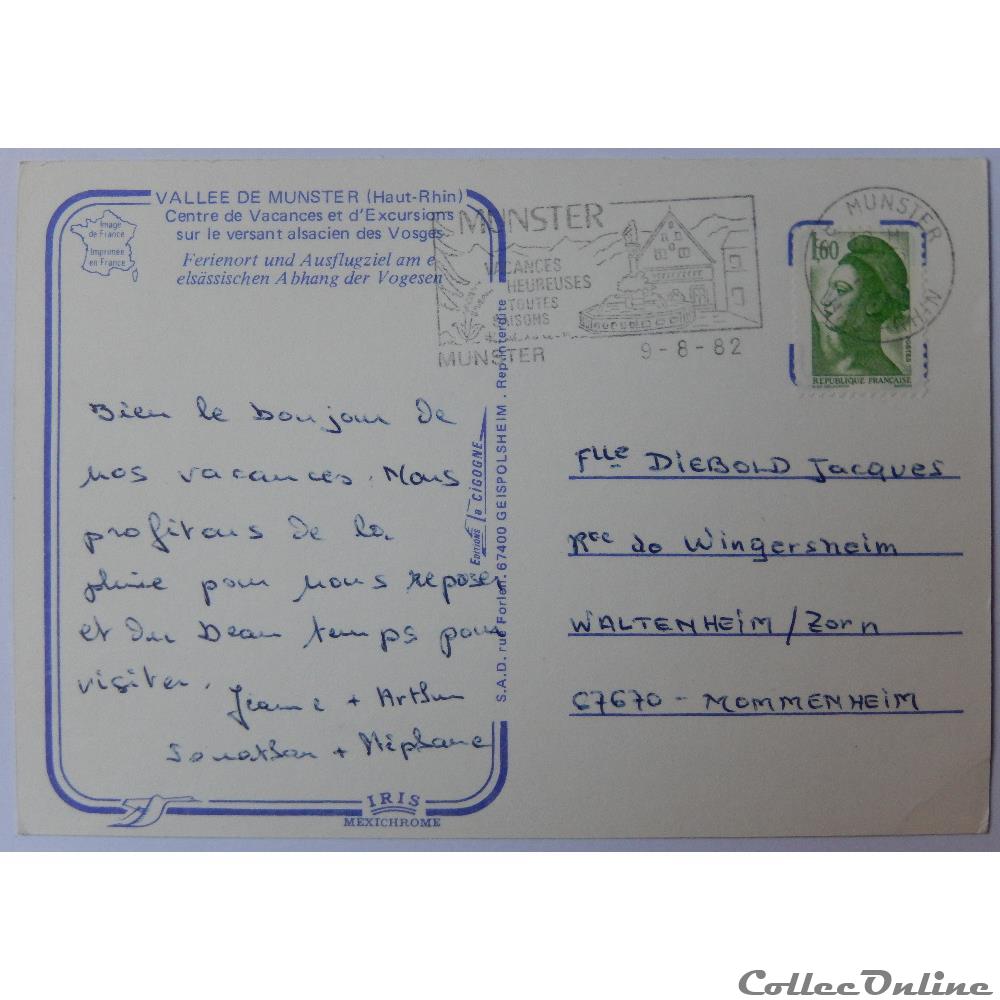 VALLEE DE MUNSTER (Haut-Rhin)
Centre de Vacances et d'Excursions
sur le versant alsacien des Vosges
Ferienort und Ausflugziel am e
elsässischen Abhang der Vogesen
Image
de France
Imprimée
en France
MUNSTER
VACANCES
HEUREUSES
TOUTES
SAISONS
MUNSTER
9-8-82
MUNSTER
1,60
POSTES
REPUBLIQUE FRANÇAISE
Bien le bonjour de
nos vacances. Nous
profitons de la
pluie pour nous reposer
et du beau temps pour
visiter.
Jeanne + Arthur
Jonathan + Stéphane
Editions la CIGOGNE
S.A.D. rue Forlen. 67400 GEISPOLSHEIM . Rep. interdite
IRIS
MEXICHROME
Flle DIEBOLD Jacques
Rte de Wingersheim
WALTENHEIM/Zorn
67670 - MOMMENHEIM
CollecOnline